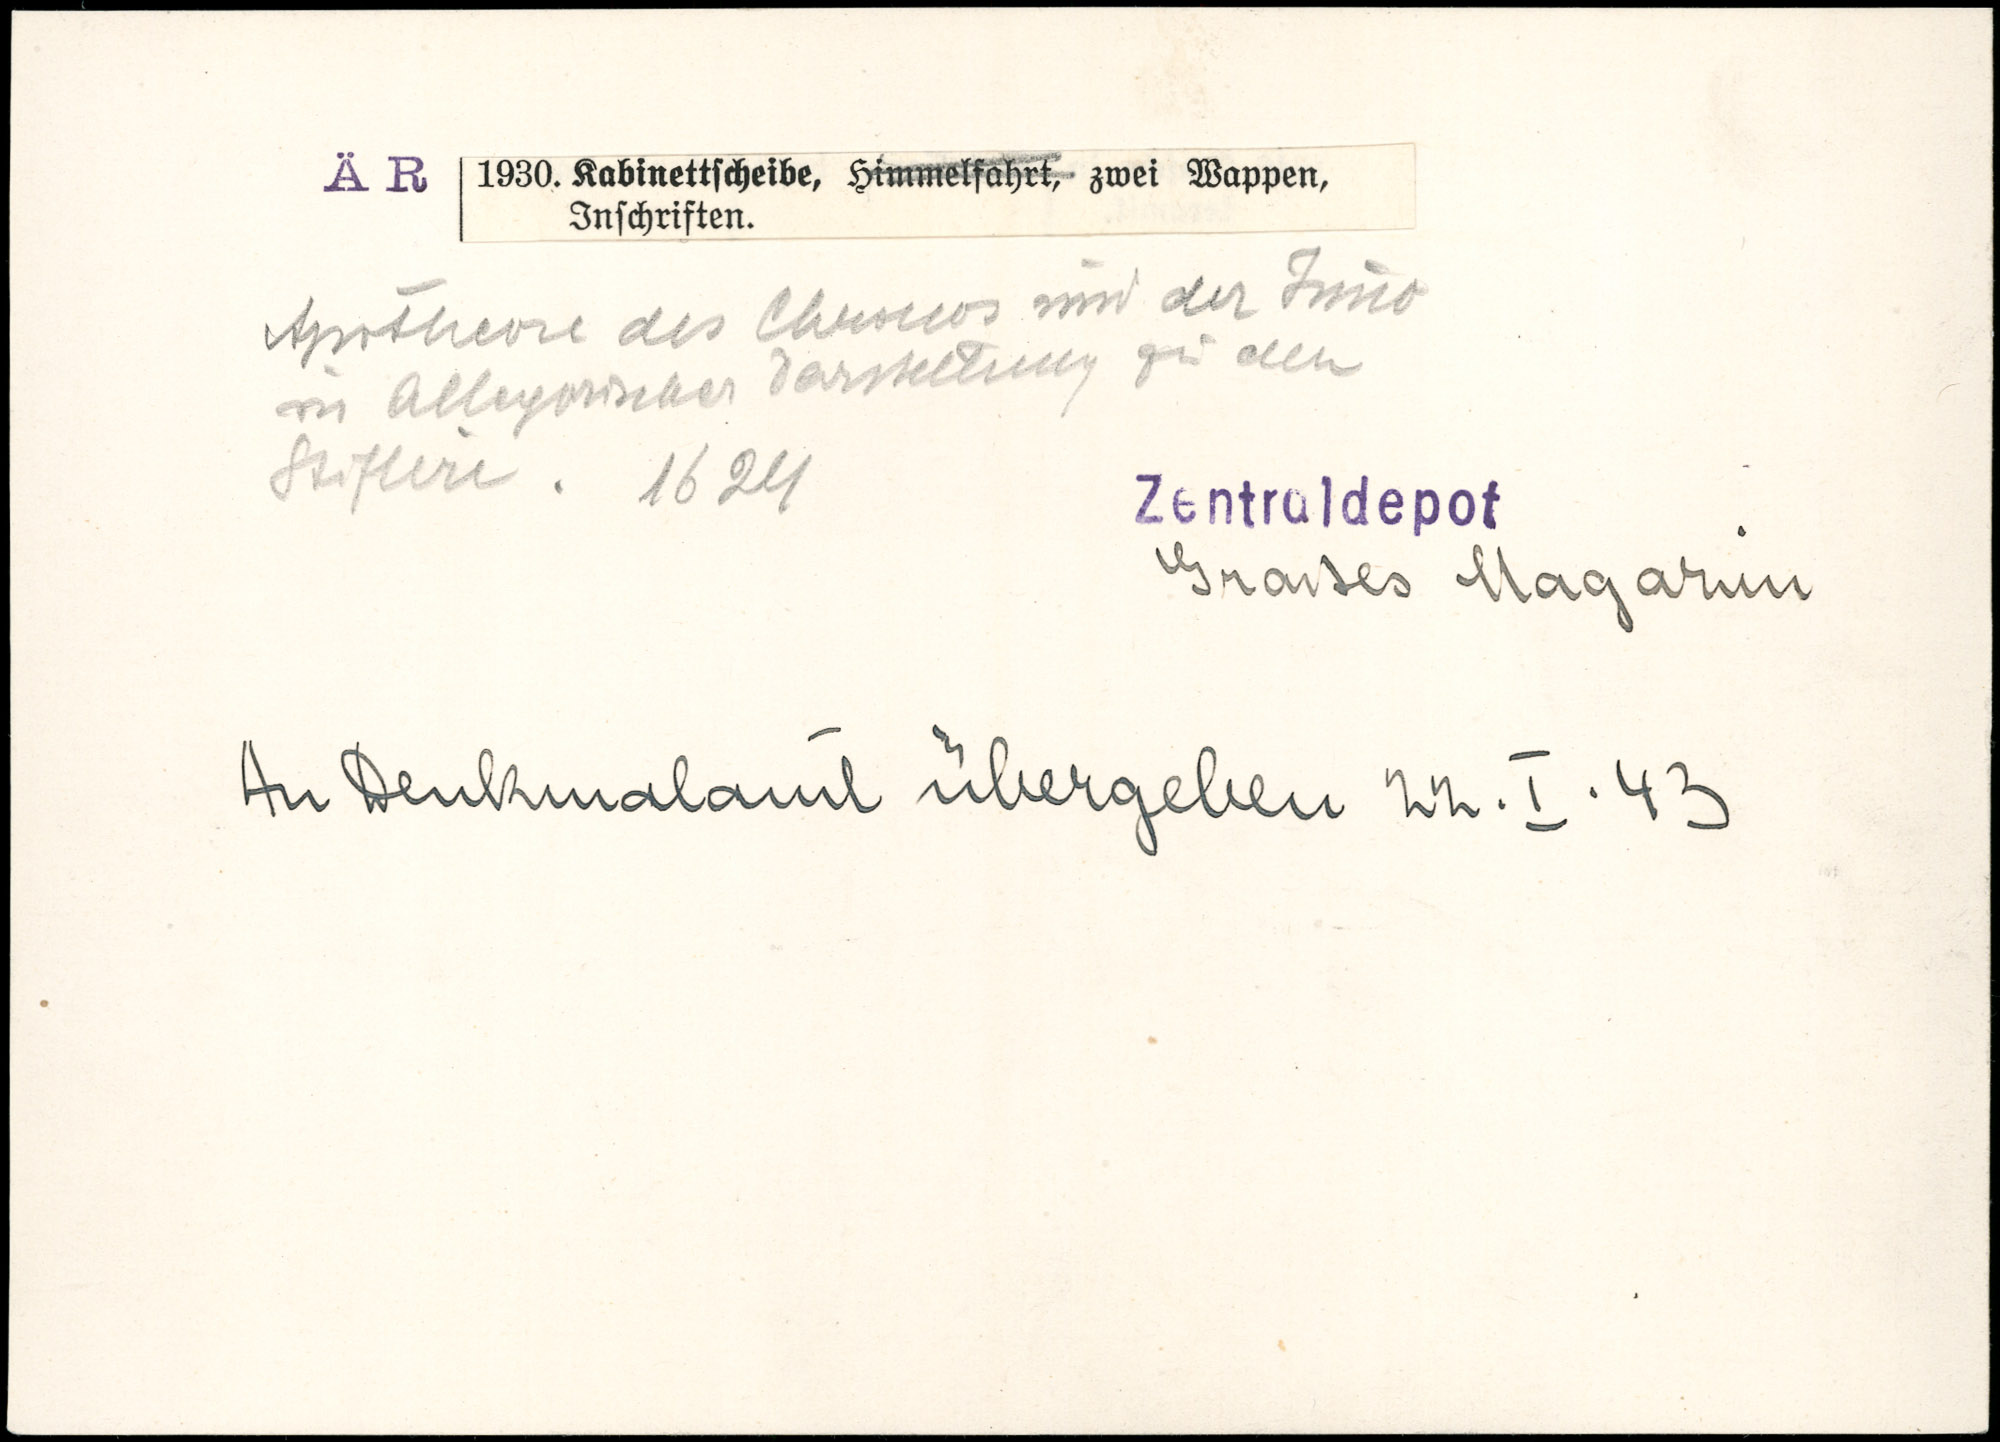 ÄR 1930. Kabinettscheibe, Himmelfahrt, zwei Wappen,
Inschriften.
Apotheose des Chronos und der Juno
in Allegorischer Darstellung zu den
Stiftern. 1624
Zentraldepot
Grosses Magazin
An Denkmalamt übergeben 22.I.43